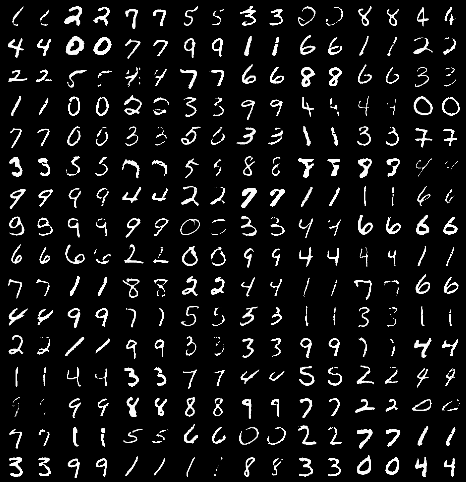 6 6 2 2 7 7 5 5 3 3 0 0 8 8 4 4
4 4 0 0 7 7 9 9 1 1 6 6 1 1 2 2
2 2 5 5 4 4 7 7 6 6 8 8 6 6 3 3
1 1 0 0 2 2 3 3 9 9 4 4 4 4 0 0
7 7 0 0 3 3 5 5 3 3 1 1 3 3 7 7
3 3 5 5 7 7 5 5 8 8 8 8 8 8 4 4
9 9 9 9 4 4 2 2 7 7 1 1 1 1 6 6
9 9 9 9 9 9 0 0 3 3 4 4 6 6 6 6
6 6 6 6 2 2 0 0 9 9 4 4 4 4 1 1
7 7 1 1 8 8 2 2 4 4 1 1 7 7 6 6
4 4 9 9 7 7 5 5 5 5 1 1 3 3 1 1
2 2 1 1 9 9 3 3 3 3 9 9 7 7 4 4
1 1 4 4 3 3 7 7 4 4 5 5 2 2 4 4
9 9 9 9 8 8 8 8 9 9 7 7 2 2 0 0
7 7 1 1 5 5 6 6 0 0 2 2 7 7 1 1
3 3 9 9 1 1 1 1 8 8 3 3 0 0 4 4